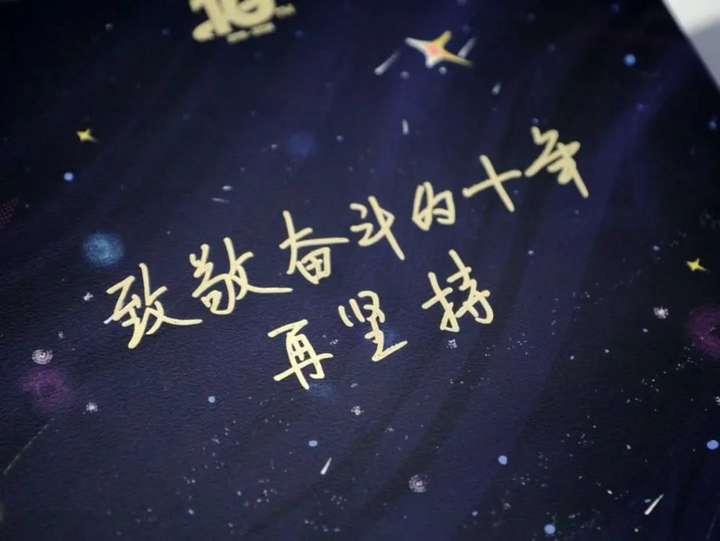 致敬奋斗的十年
再坚持